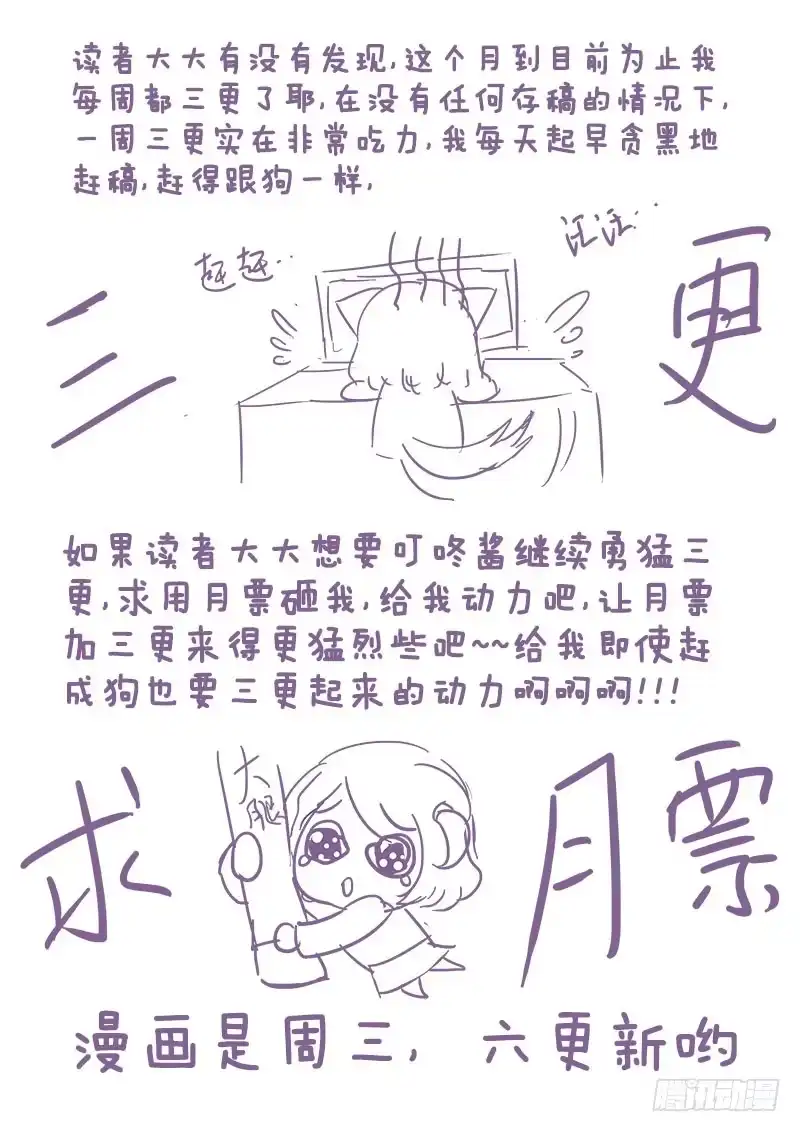 读者大大有没有发现,这个月到目前为止我
每周都三更了耶,在没有任何存稿的情况下,
一周三更实在非常吃力,我每天起早贪黑地
赶稿,赶得跟狗一样,
赶赶..
汪汪...
三更
如果读者大大想要叮咚酱继续勇猛三
更,求用月票砸我,给我动力吧,让月票
加三更来得更猛烈些吧~~给我即使赶
成狗也要三更起来的动力啊啊啊!!!
大腿
求月票
漫画是周三,六更新哟
腾讯动漫